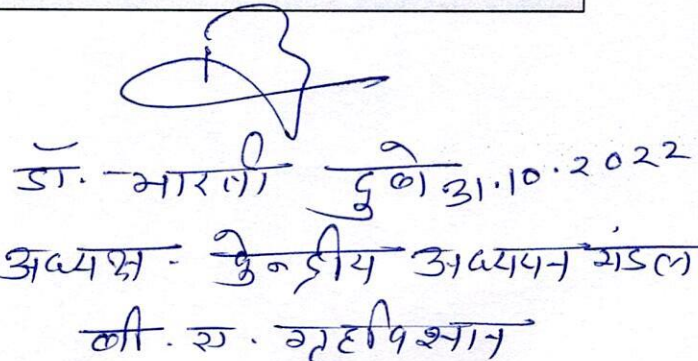 डॉ. भारती दुबे 31.10.2022
अध्यक्ष - केन्द्रीय अध्ययन मंडल
बी. ए. गृहविज्ञान